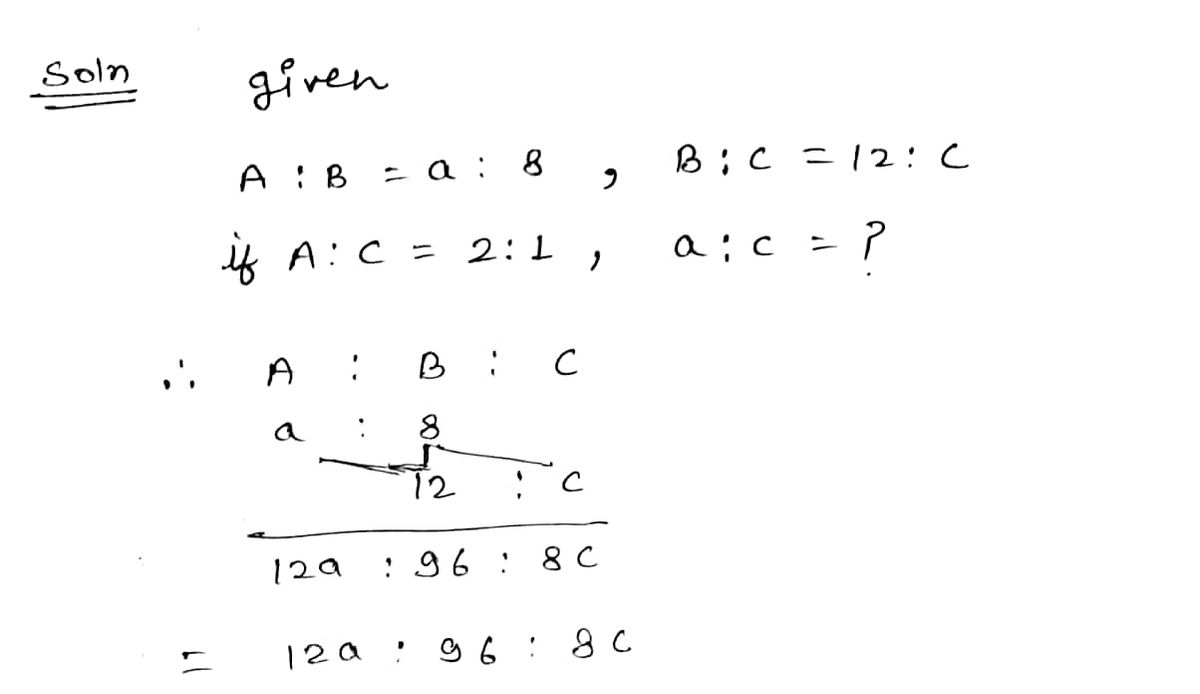 Soln given
A : B = a : 8 , B : C = 12 : C
if A : C = 2 : 1 , a : c = ?
∴ A : B : C
a : 8
12 : C
12a : 96 : 8C
= 12a : 96 : 8C